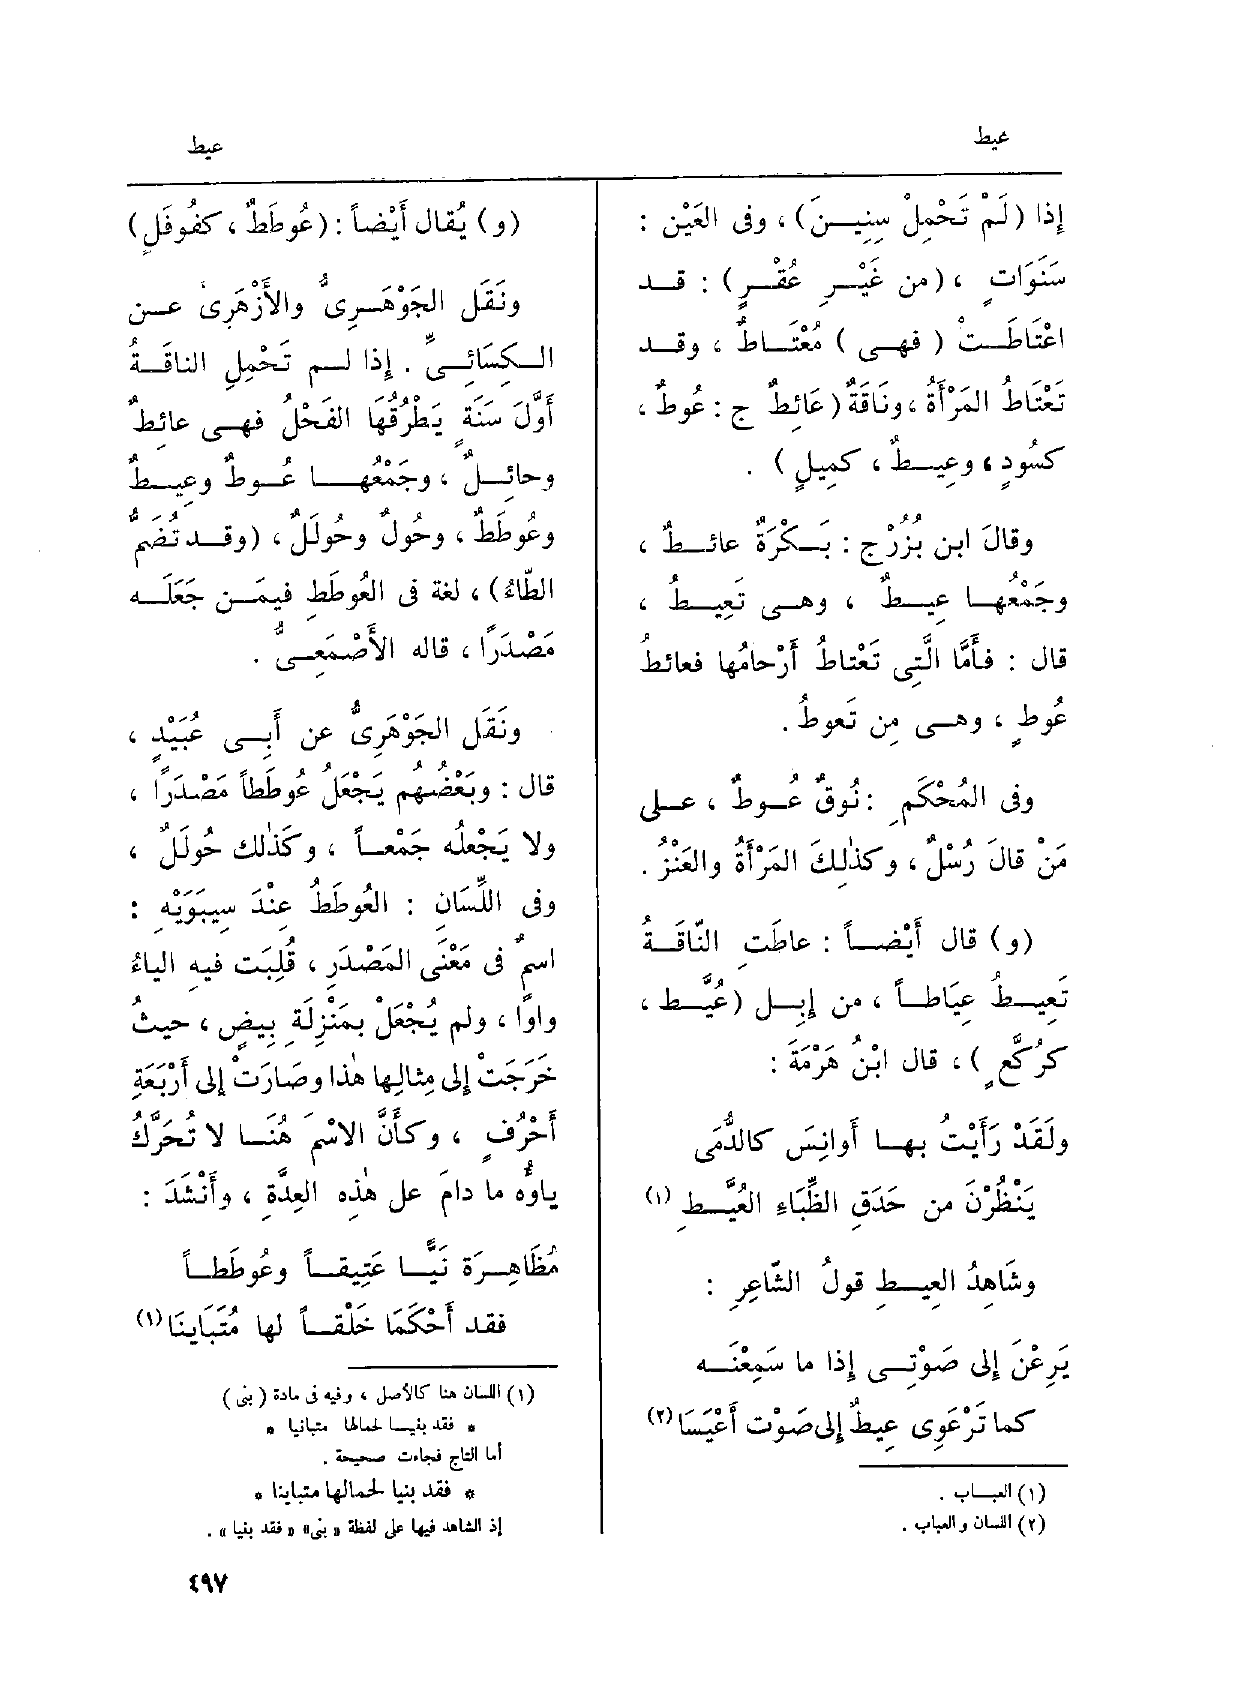 عيط
عيط
إذا (لَمْ تَحْمِلْ سِنِينَ) ، وفى العَيْن :
سَنَوَاتٍ ، (من غَيْرِ عُقْرٍ) : قد
اعْتَاطَتْ ( فهى ) مُعْتَاطٌ ، وقد
تَعْتَاطُ المَرْأَةُ ، ونَاقَةٌ ( عَائِطٌ ج : عُوطٌ ،
كسُودٍ ، وعِيطٌ ، كمِيلٍ ) .
وقالَ ابن بُزُرْج : بَكْرَةٌ عائطٌ ،
وجَمْعُها عِيطٌ ، وهى تَعِيطُ ،
قال : فأَمَّا الَّتِى تَعْتاطُ أَرْحامُها فعائطُ
عُوطٍ ، وهى مِن تَعوطُ .
وفى المُحْكَمِ : نُوقٌ عُوطٌ ، على
مَنْ قالَ رُسْلٌ ، وكَذٰلِكَ المَرْأَةُ والعَنْزُ .
(و) قال أَيْضاً : عاطَتِ النّاقَةُ
تَعِيطُ عِيَاطاً ، من إِبِلٍ (عُيَّط ،
كرُكَّعٍ ) ، قال ابْنُ هَرْمَةَ :
ولَقَدْ رَأَيْتُ بها أَوانِسَ كالدُّمَى
يَنْظُرْنَ من حَدَقِ الظِّبَاءِ العُيَّطِ (١)
وشَاهِدُ العِيطِ قولُ الشّاعِرِ :
يَرِعْنَ إلى صَوْتِى إذا ما سَمِعْنَه
كما تَرْعَوِى عِيطٌ إلى صَوْتِ أَعْيَسَا (٢)
(١) العباب .
(٢) اللسان والعباب .
(و) يُقال أَيْضاً : (عُوطَطٌ ، كفُوفَلٍ)
ونَقَل الجَوْهَرِىُّ والأَزْهَرِىُّ عن
الكسَائِىِّ . إذا لم تَحْمِلِ الناقَةُ
أَوَّلَ سَنَةٍ يَطْرُقُهَا الفَحْلُ فهى عائِطٌ
وحائِلٌ ، وجَمْعُها عُوطٌ وعِيطٌ
وعُوطَطٌ ، وحُولٌ وحُولَلٌ ، (وقد تُضَمُّ
الطّاءُ) ، لغة فى العُوطَطِ فيمَن جَعَلَه
مَصْدَرًا ، قاله الأَصْمَعِىُّ .
ونَقَل الجَوْهَرِىُّ عن أَبِى عُبَيْدٍ ،
قال : وبَعْضُهم يَجْعَلُ عُوطَطاً مَصْدَرًا ،
ولا يَجْعلُه جَمْعاً ، وكَذٰلك حُولَلٌ ،
وفى اللِّسَانِ : العُوطَطُ عِنْدَ سِيبَوَيْهِ :
اسمٌ فى مَعْنَى المَصْدَرِ ، قُلِبَت فيه الياءُ
واوًا ، ولم يُجْعَلْ بمَنْزِلَةِ بِيضٍ ، حيثُ
خَرَجَتْ إلى مِثالِها هٰذا وصَارَتْ إلى أَرْبَعَةِ
أَحْرُفٍ ، وكأَنَّ الاسْمَ هُنَا لا تُحَرَّكُ
ياؤُه ما دامَ على هٰذِه العِدَّةِ ، وأَنْشَدَ :
مُظَاهِرَة نَيًّا عَتِيقاً وعُوطَطاً
فقد أَحْكَمَا خَلْقاً لها مُتَبَايِنَا (١)
(١) اللسان هنا كالأصل ، وفيه فى مادة ( بنى )
* فقد بنيا لحمالها متبانيا *
أما التاج فجاءت صحيحة .
* فقد بنيا لحمالها متباينا *
إذ الشاهد فيها على لفظة « بنى» « فقد بنيا » .
٤٩٧